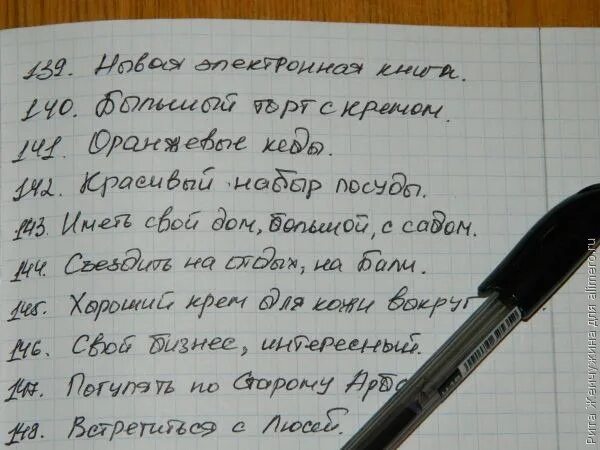 139. Новая электронная книга.
140. Большой торт с кремом.
141. Оранжевые кеды.
142. Красивый набор посуды.
143. Иметь свой дом, большой, с садом.
144. Съездить на отдых, на Бали.
145. Хороший крем для кожи вокруг
146. Свой бизнес, интересный.
147. Погулять по Старому Арба
148. Встретиться с Люсей.
Рита Жемчужина для alimero.ru